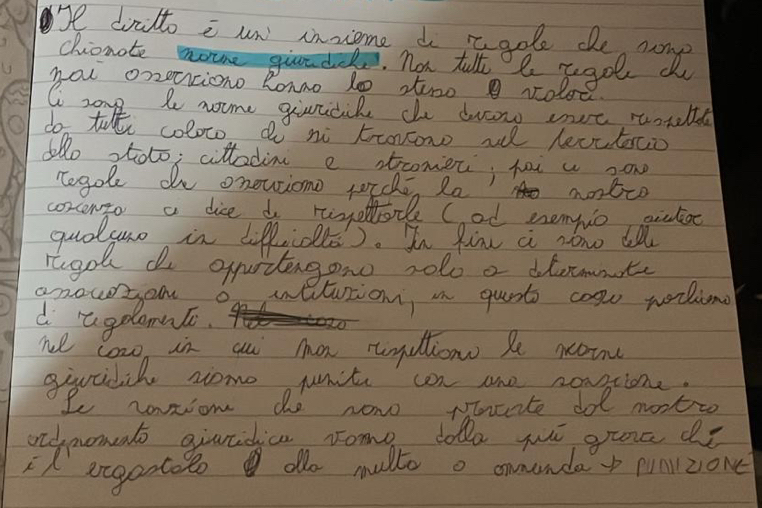 Il diritto è un' insieme di regole che sono
chiamate norme giuridiche. Non tutte le regole che
noi osserviamo hanno lo stesso valore.
Ci sono le norme giuridiche che devono essere rispettate
da tutti coloro che si trovano nel territorio
dello stato; cittadini e stranieri; poi ci sono
regole che osserviamo perché la nostra
coscenza ci dice di rispettarle (ad esempio aiutare
qualcuno in difficoltà). In fine ci sono delle
regole che appartengono solo a determinate
associazioni o instituzioni, in questo caso parliamo
di regolamenti.
nel caso in qui non rispettiamo le norme
giuridiche siamo punite con una sanzione.
Le sanzione che sono previste dal nostro
ordinamento giuridico vanno dalla più grave ché
è l'ergastolo alla multa o ammenda → PUNIZIONE